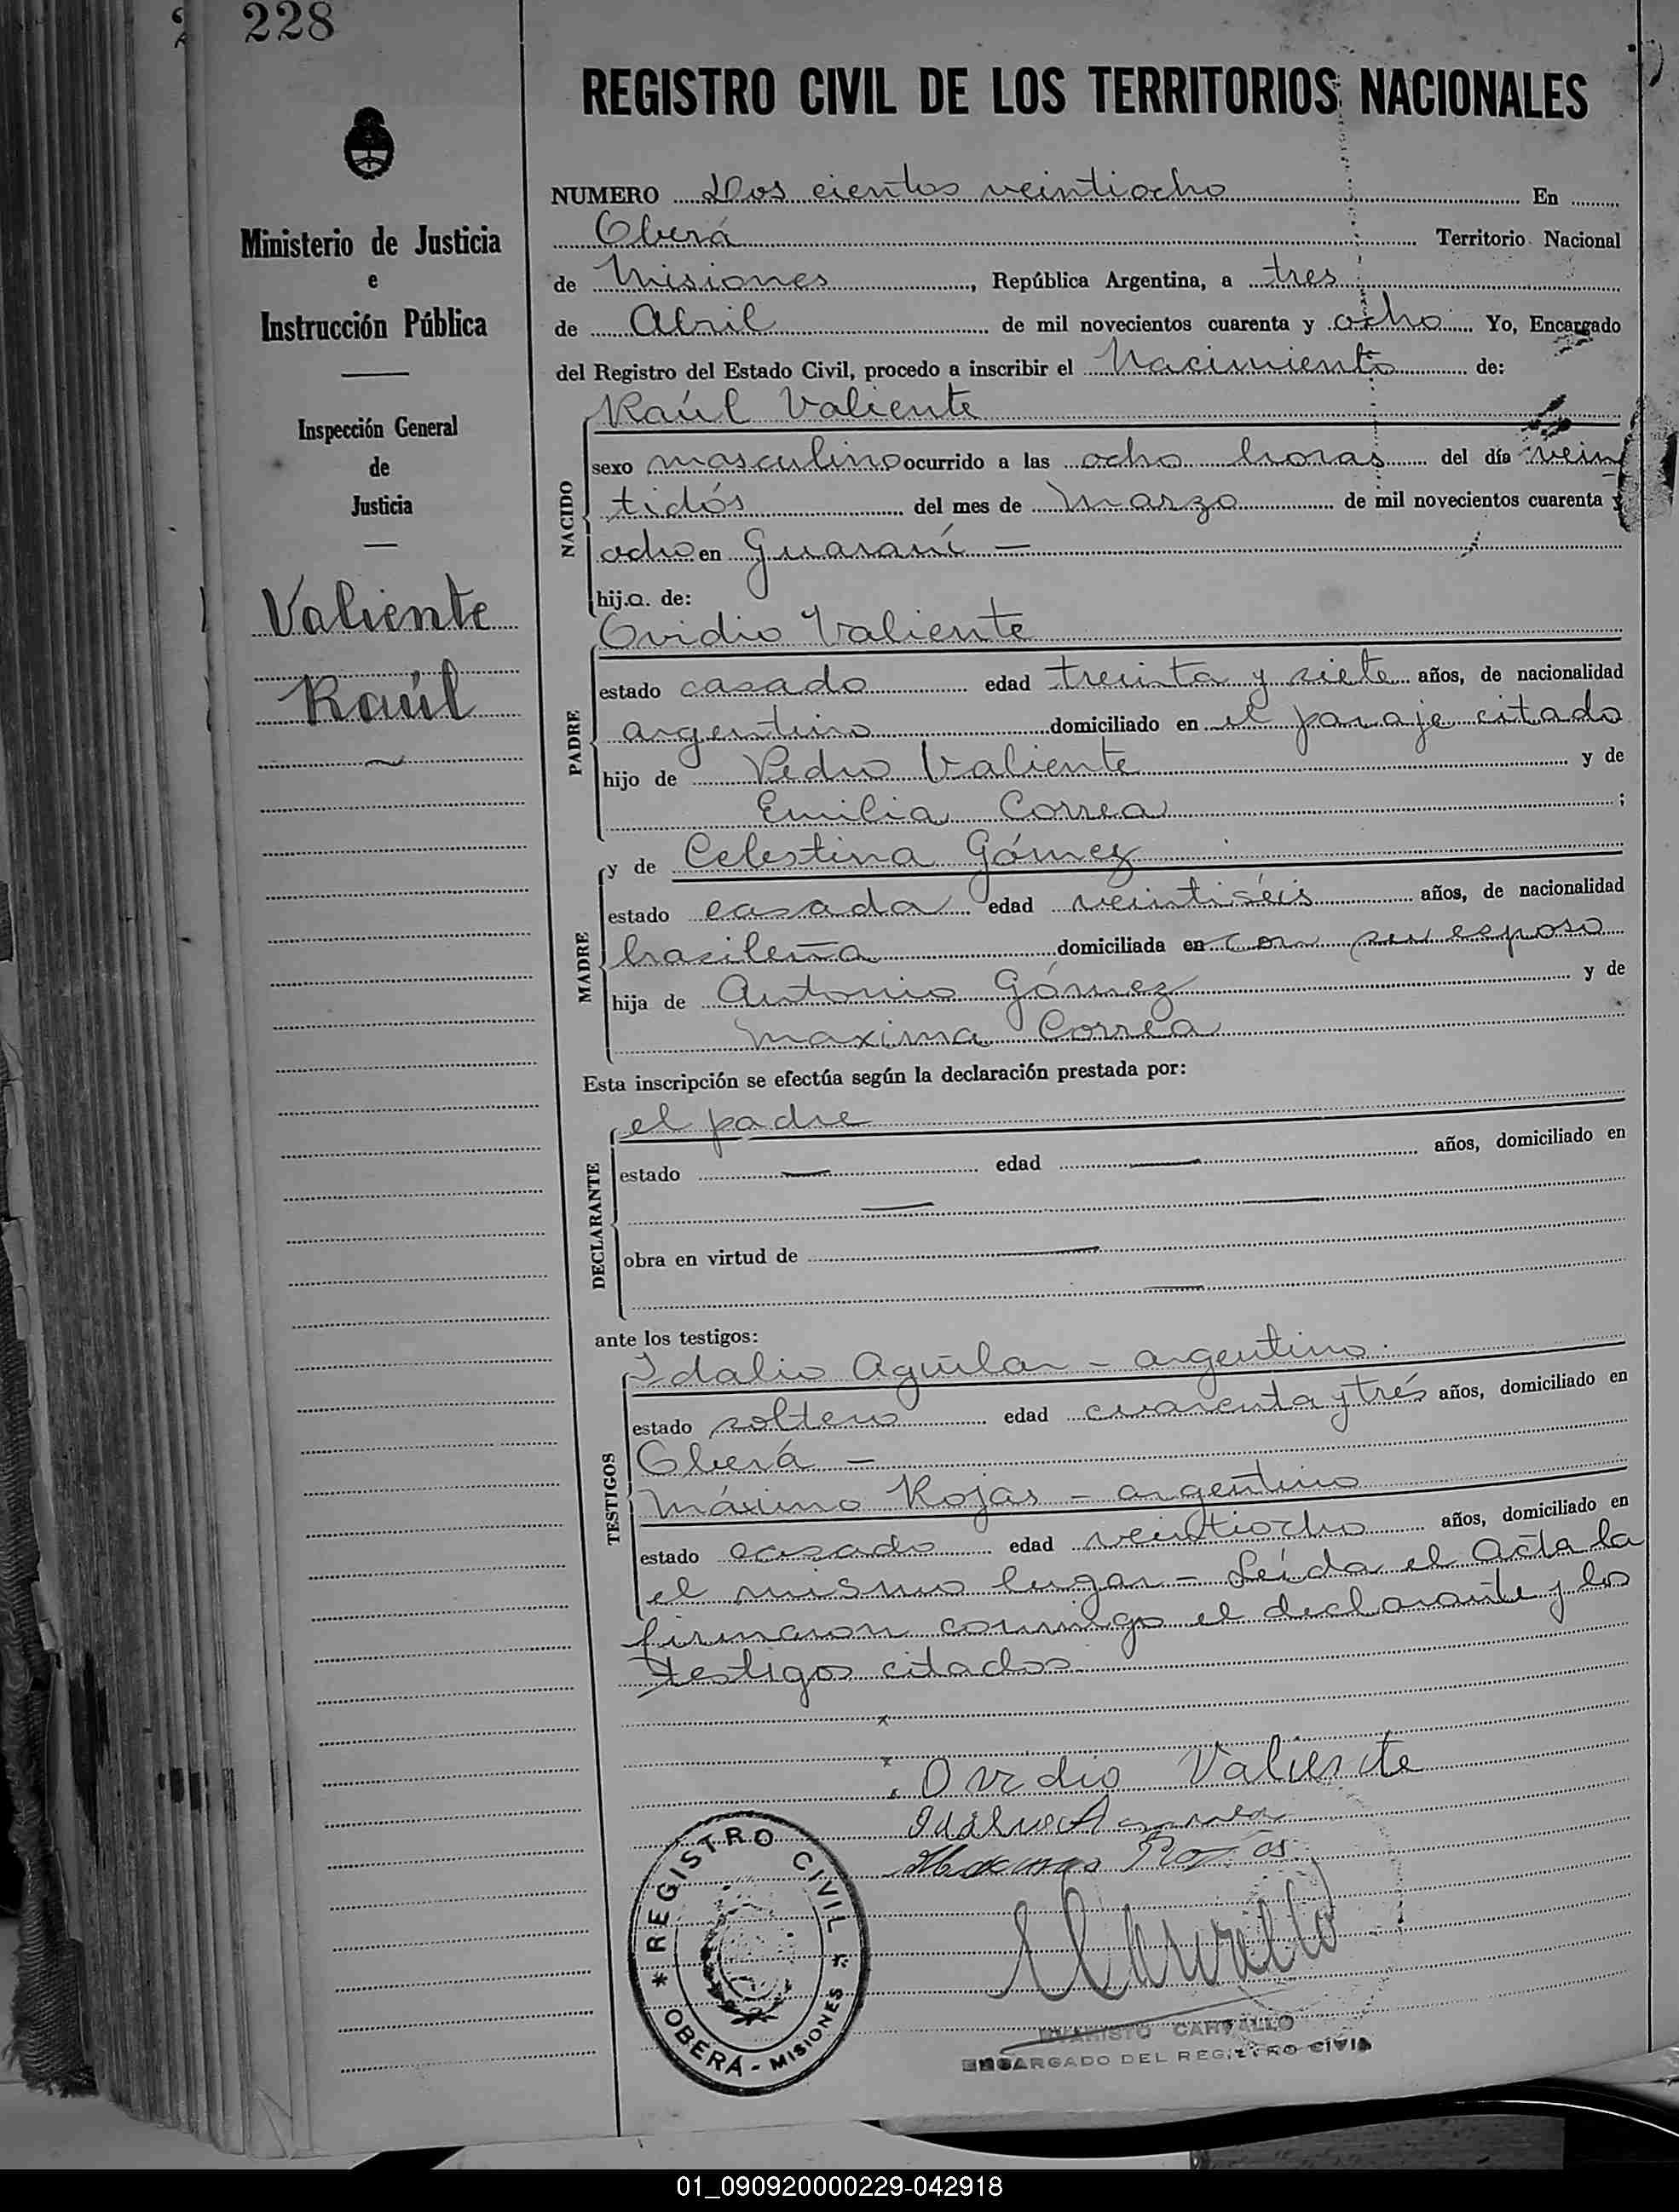 228
REGISTRO CIVIL DE LOS TERRITORIOS NACIONALES
Ministerio de Justicia
e
Instrucción Pública
Inspección General
de
Justicia
Valiente
Raúl
NUMERO Dos cientos veintiocho En
Oberá Territorio Nacional
de Misiones, República Argentina, a tres
de Abril de mil novecientos cuarenta y ocho Yo, Encargado
del Registro del Estado Civil, procedo a inscribir el Nacimiento de:
NACIDO
Raúl Valiente
sexo masculino ocurrido a las ocho horas del día vein
tidós del mes de Marzo de mil novecientos cuarenta y
ocho en Guaraní —
hij.o. de:
PADRE
Ovidio Valiente
estado casado edad treinta y siete años, de nacionalidad
argentino domiciliado en el paraje citado
hijo de Pedro Valiente y de
Emilia Correa ;
MADRE
y de Celestina Gómez
estado casada edad veintiséis años, de nacionalidad
brasileña domiciliada en con su esposo
hija de Antonio Gómez y de
Maxima Correa
Esta inscripción se efectúa según la declaración prestada por:
DECLARANTE
el padre
estado — edad — años, domiciliado en
— —
obra en virtud de —
—
ante los testigos:
TESTIGOS
Idalio Aguilar - argentino.
estado soltero edad cuarenta y trés años, domiciliado en
Oberá —
Máximo Rojas - argentino
estado casado edad veintiocho años, domiciliado en
el mismo lugar - Leída el Acta la
firmaron conmigo el declarante y los
testigos citados
x
x Ovidio Valiente
Rojas
REGISTRO CIVIL
OBERÁ - MISIONES
EVARISTO CARVALLO
ENCARGADO DEL REGISTRO CIVIL
01_090920000229-042918